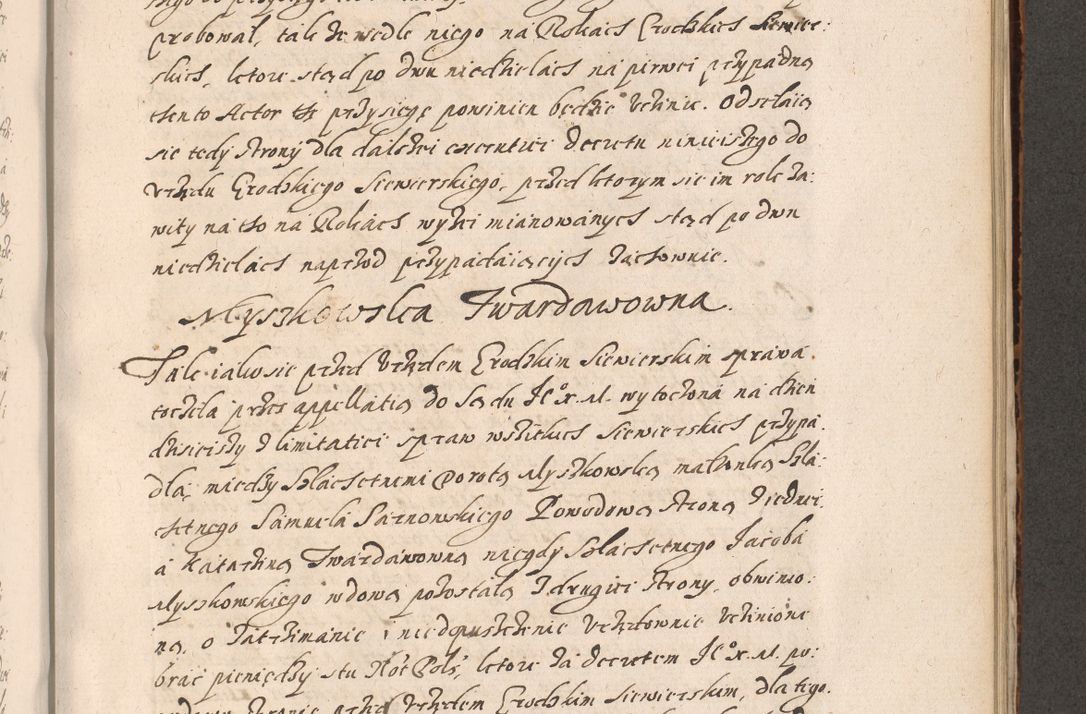 probował, tak że wedle niego na Rokach Grodzkich Siewier:
skich, ktore stąd po dwu niedzielach na pierwei przypadną
tento Actor też przysięgę powinien będzie uczinic. Odsełaią
się tedy strony dla dalszei exercutiei decretu ninieiszego do
Vrzędu Grodzkiego Siewierskiego, przed ktorym się im rok za:
wity na tho na Rokach wyżei mianowanych stąd po dwu
niedzielach naprzod przypadaiących zachownie.
Myszkowska Twardawowna.
Tak iako się przed Vrzędem Grodzkim Siewierskim sprawa
toczeła przes appellatią do Sądu Je° x. M. wytoczona na dzień
dzisieiszy z limitatiei spraw wszitkich Siewierskich przypa:
dla, między Szlachetnemi Dorotą Myszkowską małżonką Szla:
chetnego Samuela Sarnowskiego Powodową stroną z iednei,
a Katarzyną Twardawowną niegdy Szlachetnego Jacoba
Myszkowskiego wdową pozostałą z drugiei strony, obwinio:
ną, o zatrzimanie i niedopuszczenie Vrzędownie uczinione
brać pieniędzy stu złot Pols, ktore za decretem Je° x. M. po:
przed Vrzędem Grodzkim Siewierskim, dla tego.